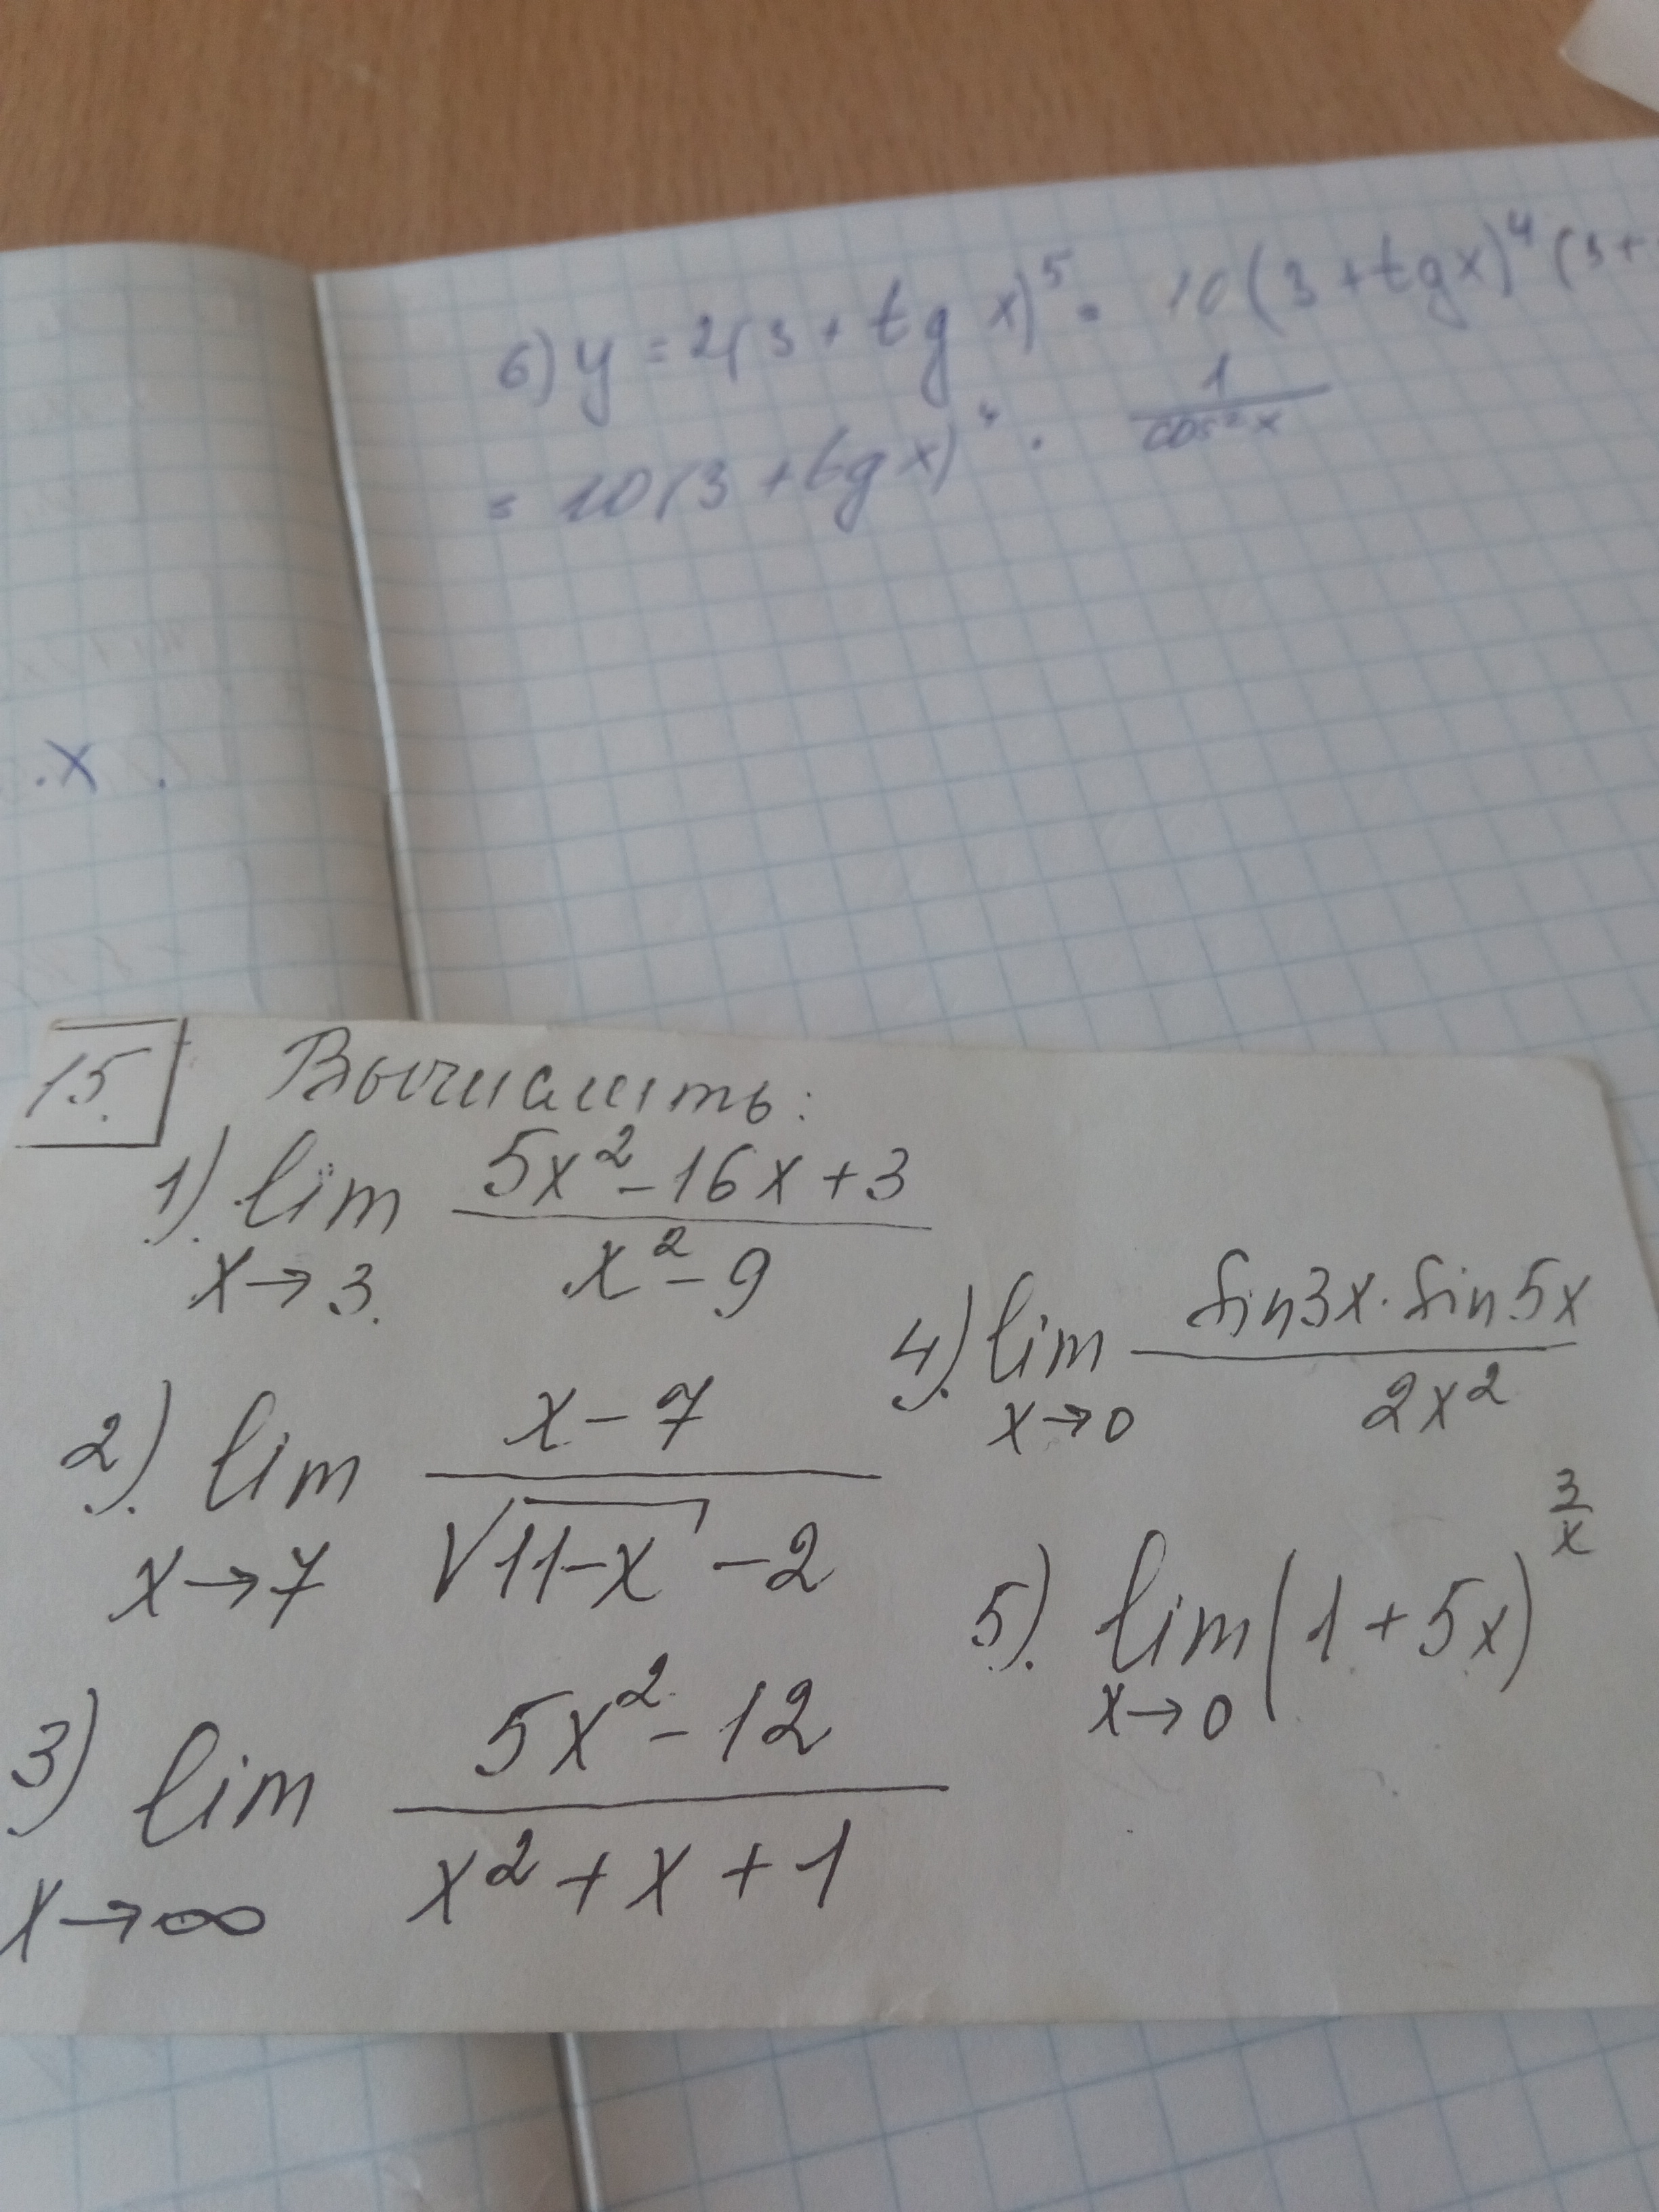 6) y = 2(3 + tg x)⁵ = 10(3 + tg x)⁴ (3 +
= 10(3 + tg x)⁴ · 1/cos²x
. x .
15. Вычислить:
1). lim x→3. (5x² - 16x + 3)/(x² - 9)
2). lim x→7 (x - 7)/(√(11-x) - 2)
3) lim x→∞ (5x² - 12)/(x² + x + 1)
4). lim x→0 (sin3x · sin5x)/(2x²)
5). lim x→0 (1 + 5x)^(3/x)